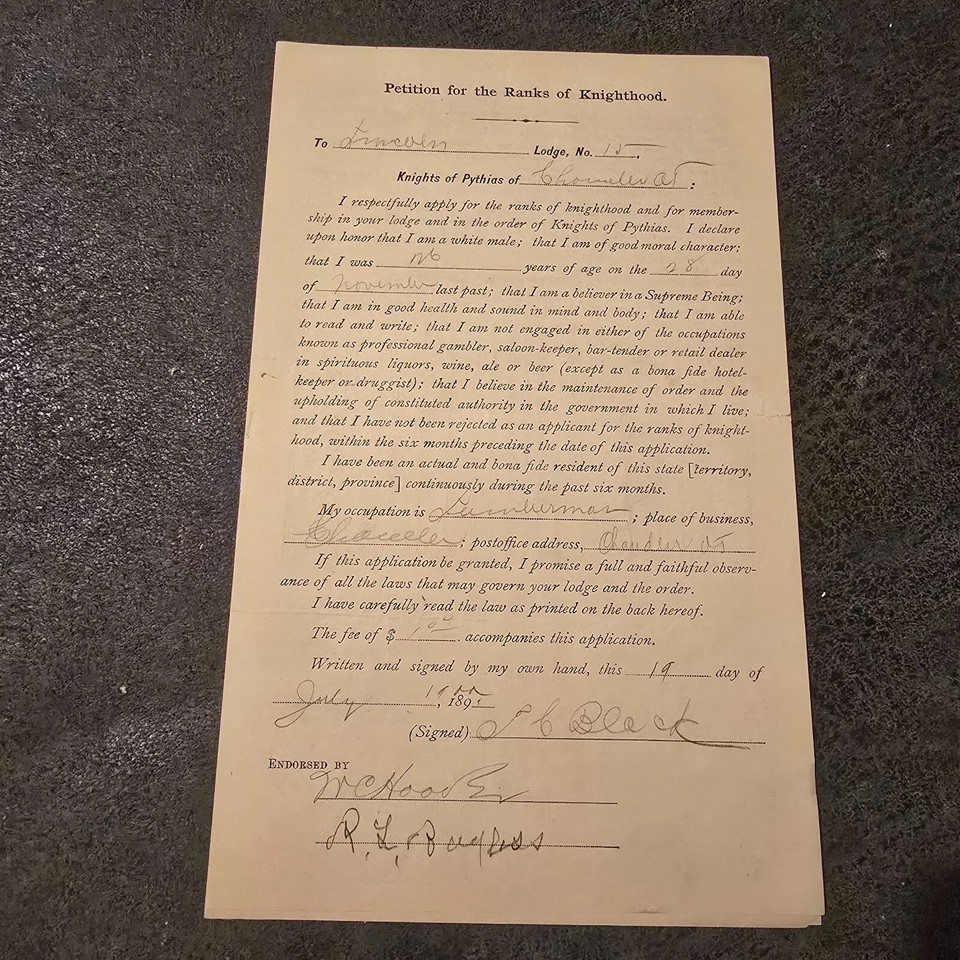 Petition for the Ranks of Knighthood.
To Lincoln Lodge, No. 15,
Knights of Pythias of Chandler OT :
I respectfully apply for the ranks of knighthood and for member-
ship in your lodge and in the order of Knights of Pythias. I declare
upon honor that I am a white male; that I am of good moral character;
that I was 26 years of age on the 28 day
of November last past; that I am a believer in a Supreme Being;
that I am in good health and sound in mind and body; that I am able
to read and write; that I am not engaged in either of the occupations
known as professional gambler, saloon-keeper, bar-tender or retail dealer
in spirituous liquors, wine, ale or beer (except as a bona fide hotel-
keeper or druggist); that I believe in the maintenance of order and the
upholding of constituted authority in the government in which I live;
and that I have not been rejected as an applicant for the ranks of knight-
hood, within the six months preceding the date of this application.
I have been an actual and bona fide resident of this state [territory,
district, province] continuously during the past six months.
My occupation is Lumberman ; place of business,
Chandler ; postoffice address, Chandler OT
If this application be granted, I promise a full and faithful observ-
ance of all the laws that may govern your lodge and the order.
I have carefully read the law as printed on the back hereof.
The fee of $ 1.00 accompanies this application.
Written and signed by my own hand, this 19 day of
July 1900, 189
(Signed) C Black
ENDORSED BY
W C Hood
R. L. Burgess